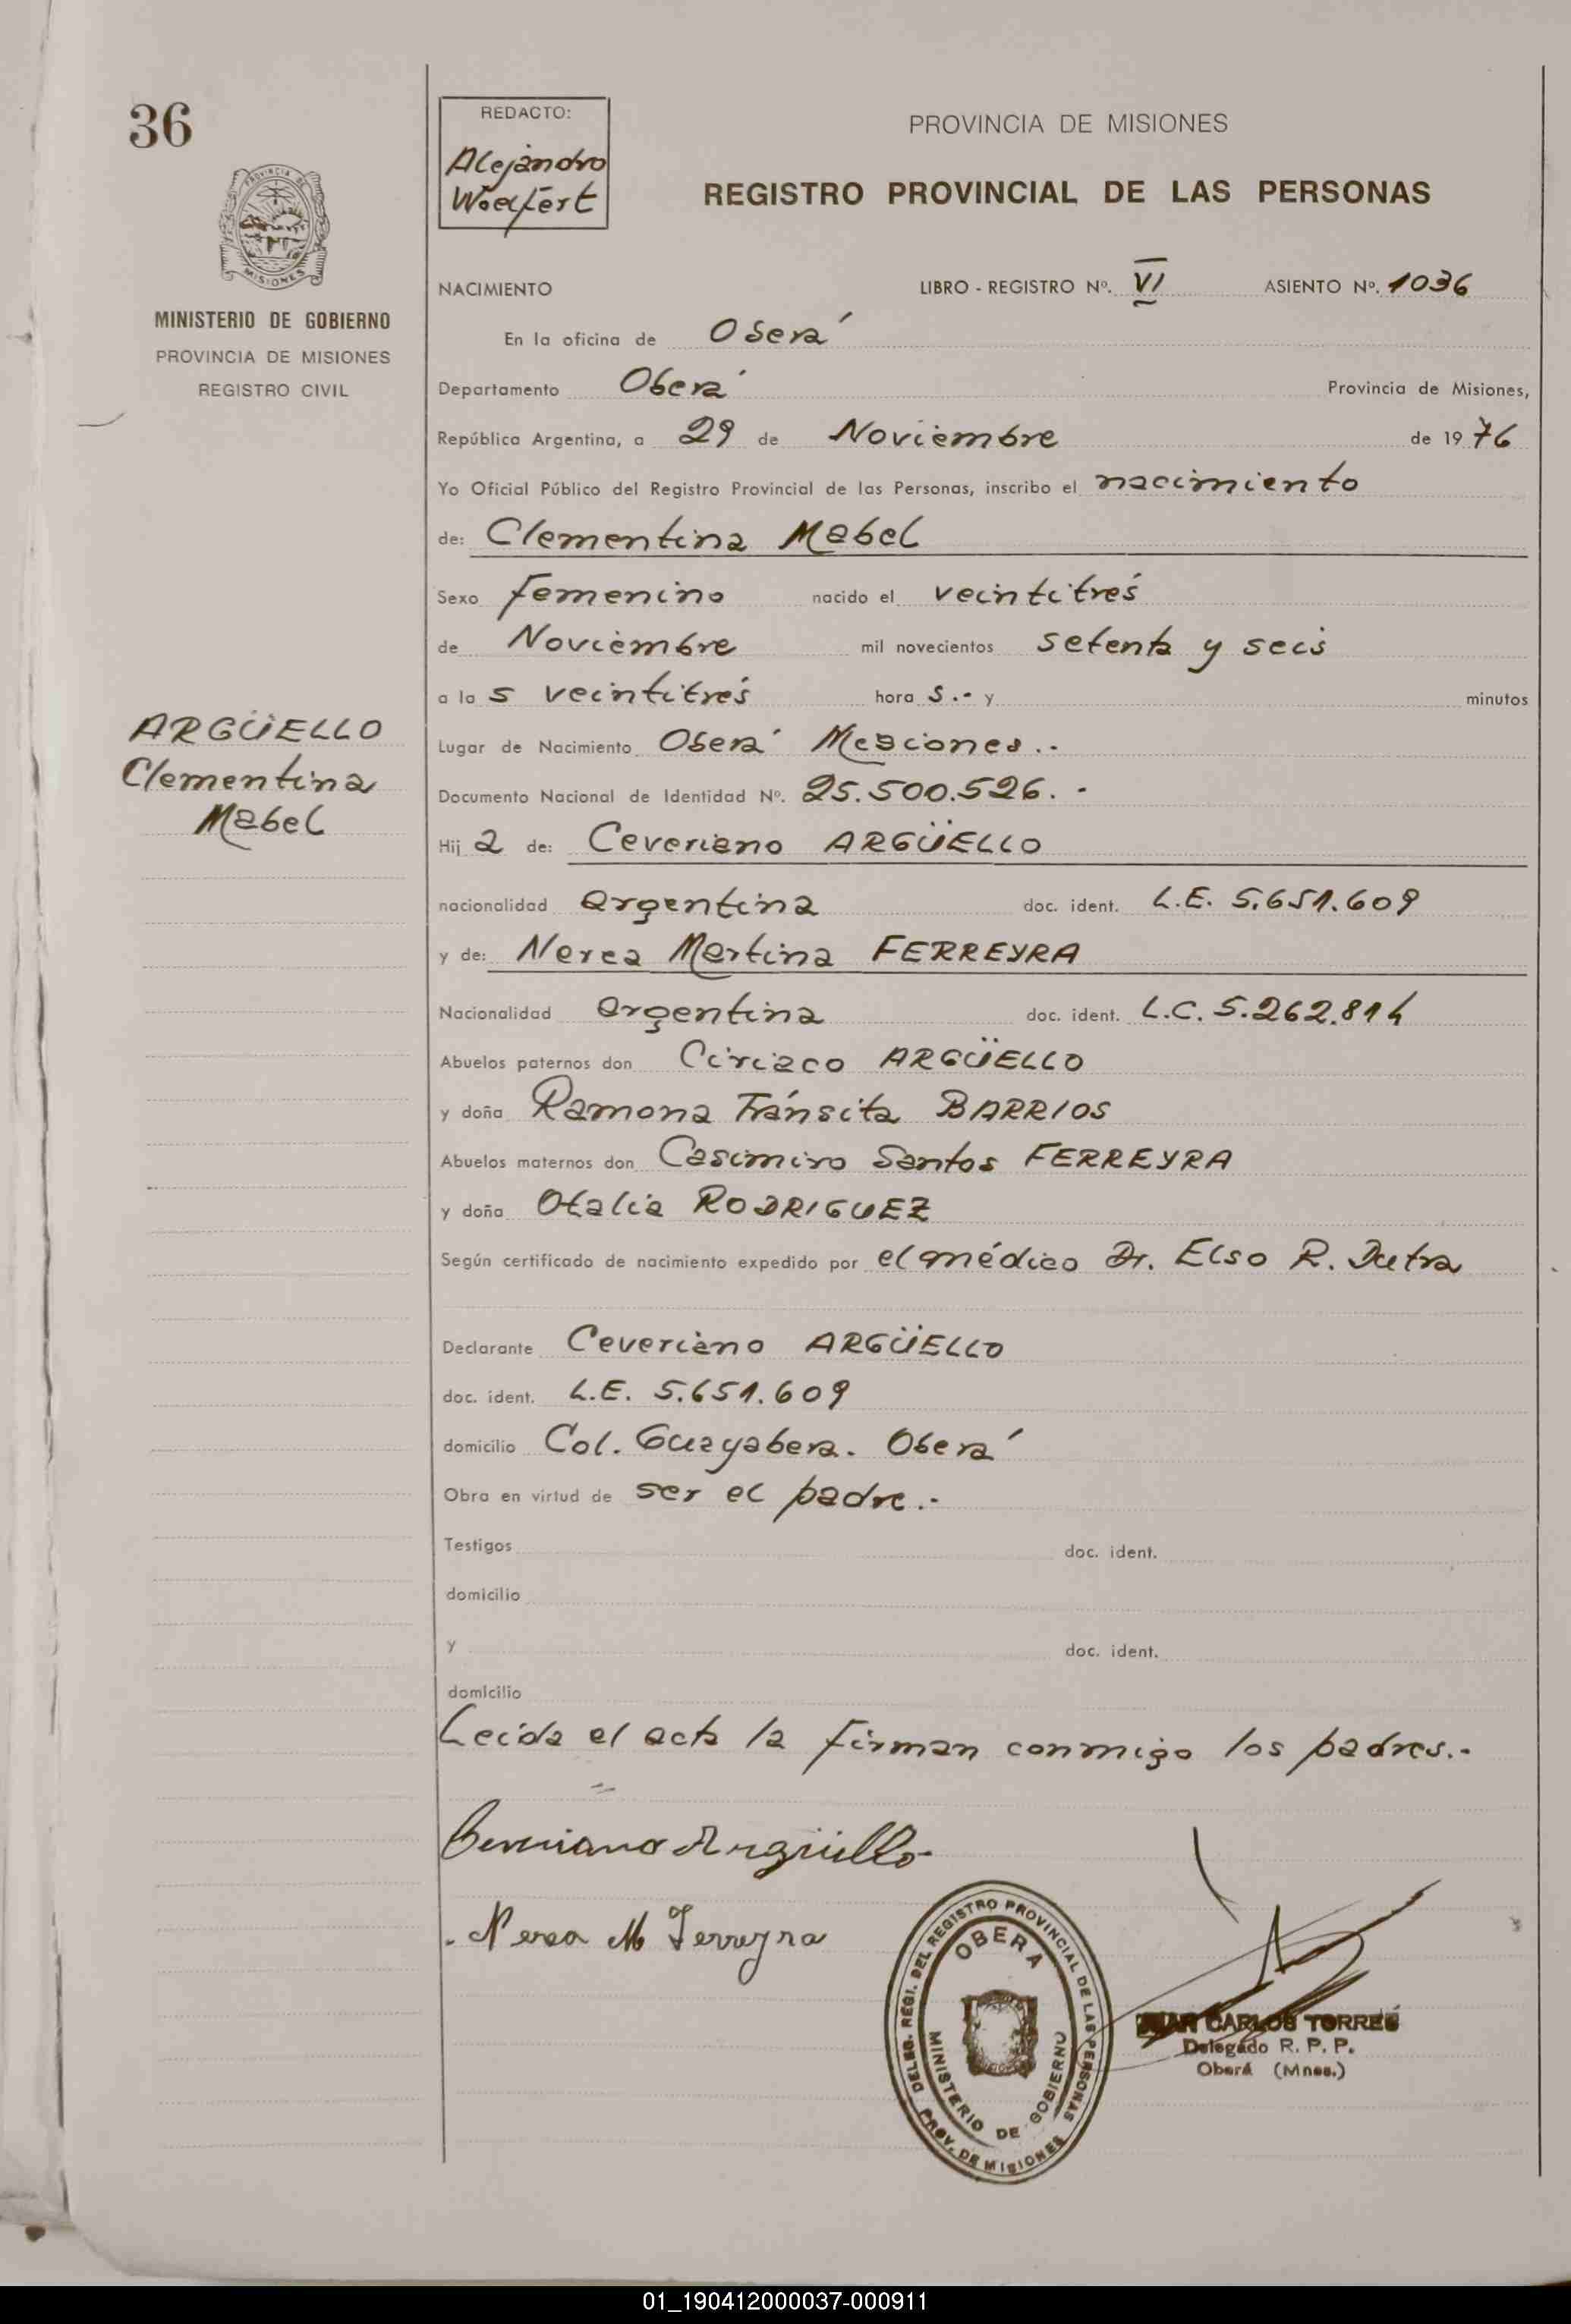 36
REDACTO:
Alejandro
Woelfert
PROVINCIA DE MISIONES
REGISTRO PROVINCIAL DE LAS PERSONAS
PROVINCIA DE
MISIONES
MINISTERIO DE GOBIERNO
PROVINCIA DE MISIONES
REGISTRO CIVIL
NACIMIENTO LIBRO - REGISTRO Nº. VI ASIENTO Nº. 1036
En la oficina de Oberá
Departamento Oberá Provincia de Misiones,
República Argentina, a 29 de Noviembre de 1976
Yo Oficial Público del Registro Provincial de las Personas, inscribo el nacimiento
de: Clementina Mabel
Sexo femenino nacido el veintitrés
de Noviembre mil novecientos setenta y seis
a la s veintitrés hora s.- y minutos
ARGÜELLO
Clementina
Mabel
Lugar de Nacimiento Oberá Misiones.-
Documento Nacional de Identidad Nº. 25.500.526.-
Hij a de: Ceveriano ARGÜELLO
nacionalidad argentina doc. ident. L.E. 5.651.609
y de: Nerea Martina FERREYRA
Nacionalidad argentina doc. ident. L.C. 5.262.814
Abuelos paternos don Ciriaco ARGÜELLO
y doña Ramona Tránsita BARRIOS
Abuelos maternos don Casimiro Santos FERREYRA
y doña Otalia RODRIGUEZ
Según certificado de nacimiento expedido por el médico Dr. Elso R. Dutra
Declarante Ceveriano ARGÜELLO
doc. ident. L.E. 5.651.609
domicilio Col. Guayabera. Oberá
Obra en virtud de ser el padre.-
Testigos doc. ident.
domicilio
y doc. ident.
domicilio
Leída el acta la firman conmigo los padres.-
Ceveriano Argüello
Nerea M Ferreyra
DELEG. REGI. DEL REGISTRO PROVINCIAL DE LAS PERSONAS
OBERA
MINISTERIO DE GOBIERNO
PROV. DE MISIONES
JUAN CARLOS TORRES
Delegado R. P. P.
Oberá (Mnes.)
01_190412000037-000911